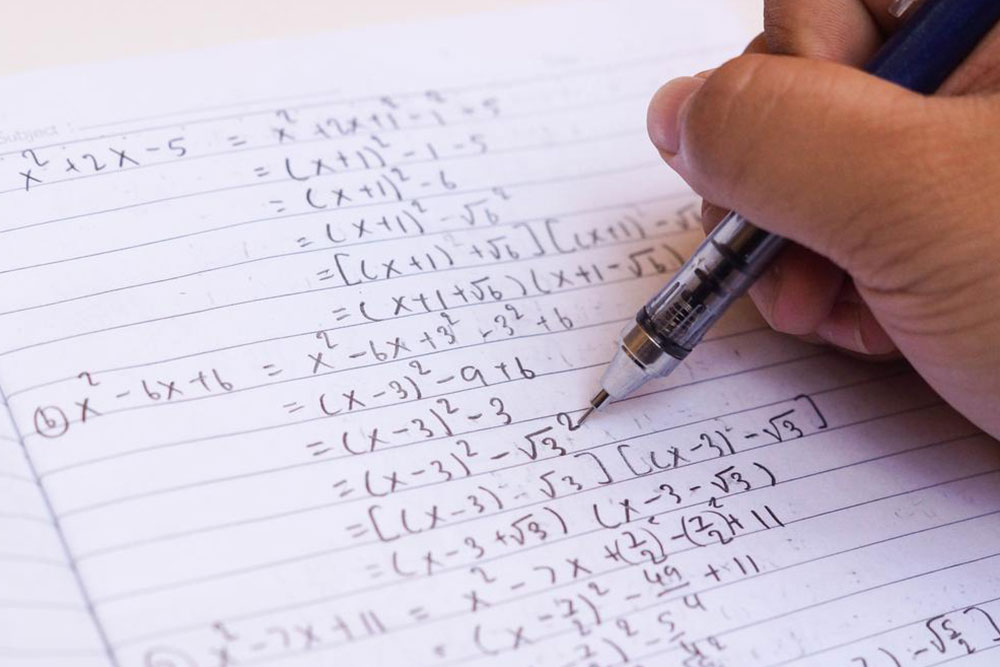 Subject :
x² + 2x - 5 = x² + 2x + 1² - 1² - 5
= (x+1)² - 1 - 5
= (x+1)² - 6
= (x+1)² - √6²
= [(x+1) + √6] [(x+1) - √
= (x+1+√6) (x+1-√6)
(b) x² - 6x + 6 = x² - 6x + 3² - 3² + 6
= (x-3)² - 9 + 6
= (x-3)² - 3
= (x-3)² - √3²
= [(x-3) - √3] [(x-3) - √3]
= (x-3+√3) (x-3-√3)
x² - 7x + 11 = x² - 7x + (7/2)² - (7/2)² + 11
= (x - 7/2)² - 49/4 + 11